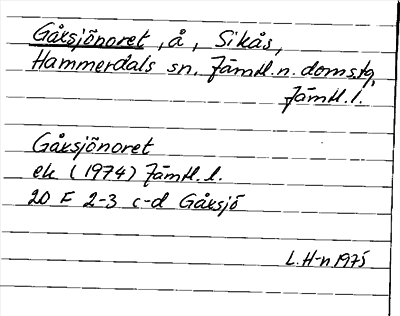 Gåxsjönoret, å, Sikås,
Hammerdals sn. Jämtl. n. doms.tg,
Jämtl. l.
Gåxsjönoret
ek (1974) Jämtl. l.
20 F 2-3 c-d Gåxsjö
L. H-n 1975